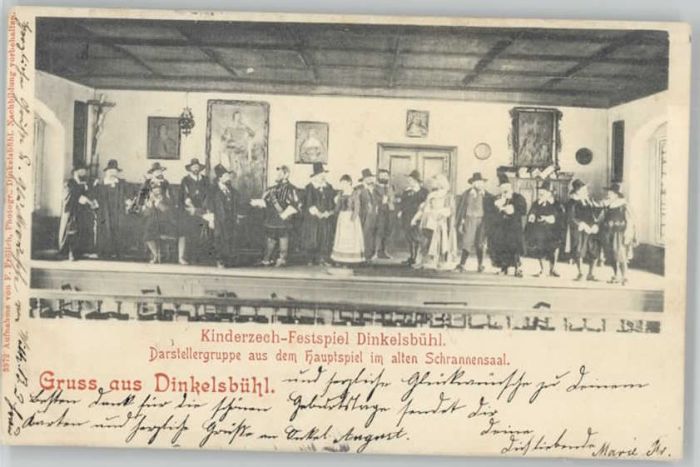 Kinderzech-Festspiel Dinkelsbühl.
Darstellergruppe aus dem Hauptspiel im alten Schrannensaal.
Gruss aus Dinkelsbühl.
und herzliche Glückwünsche zu Deinem
besten Dank für die schönen Geburtstage sendet Dir
Karten und herzliche Grüße an Onkel August.
Deine
Dich liebende Marie
5572 Aufnahme von F. Frölich, Photogr., Dinkelsbühl. Nachbildung vorbehalten.
Herzliche Grüße